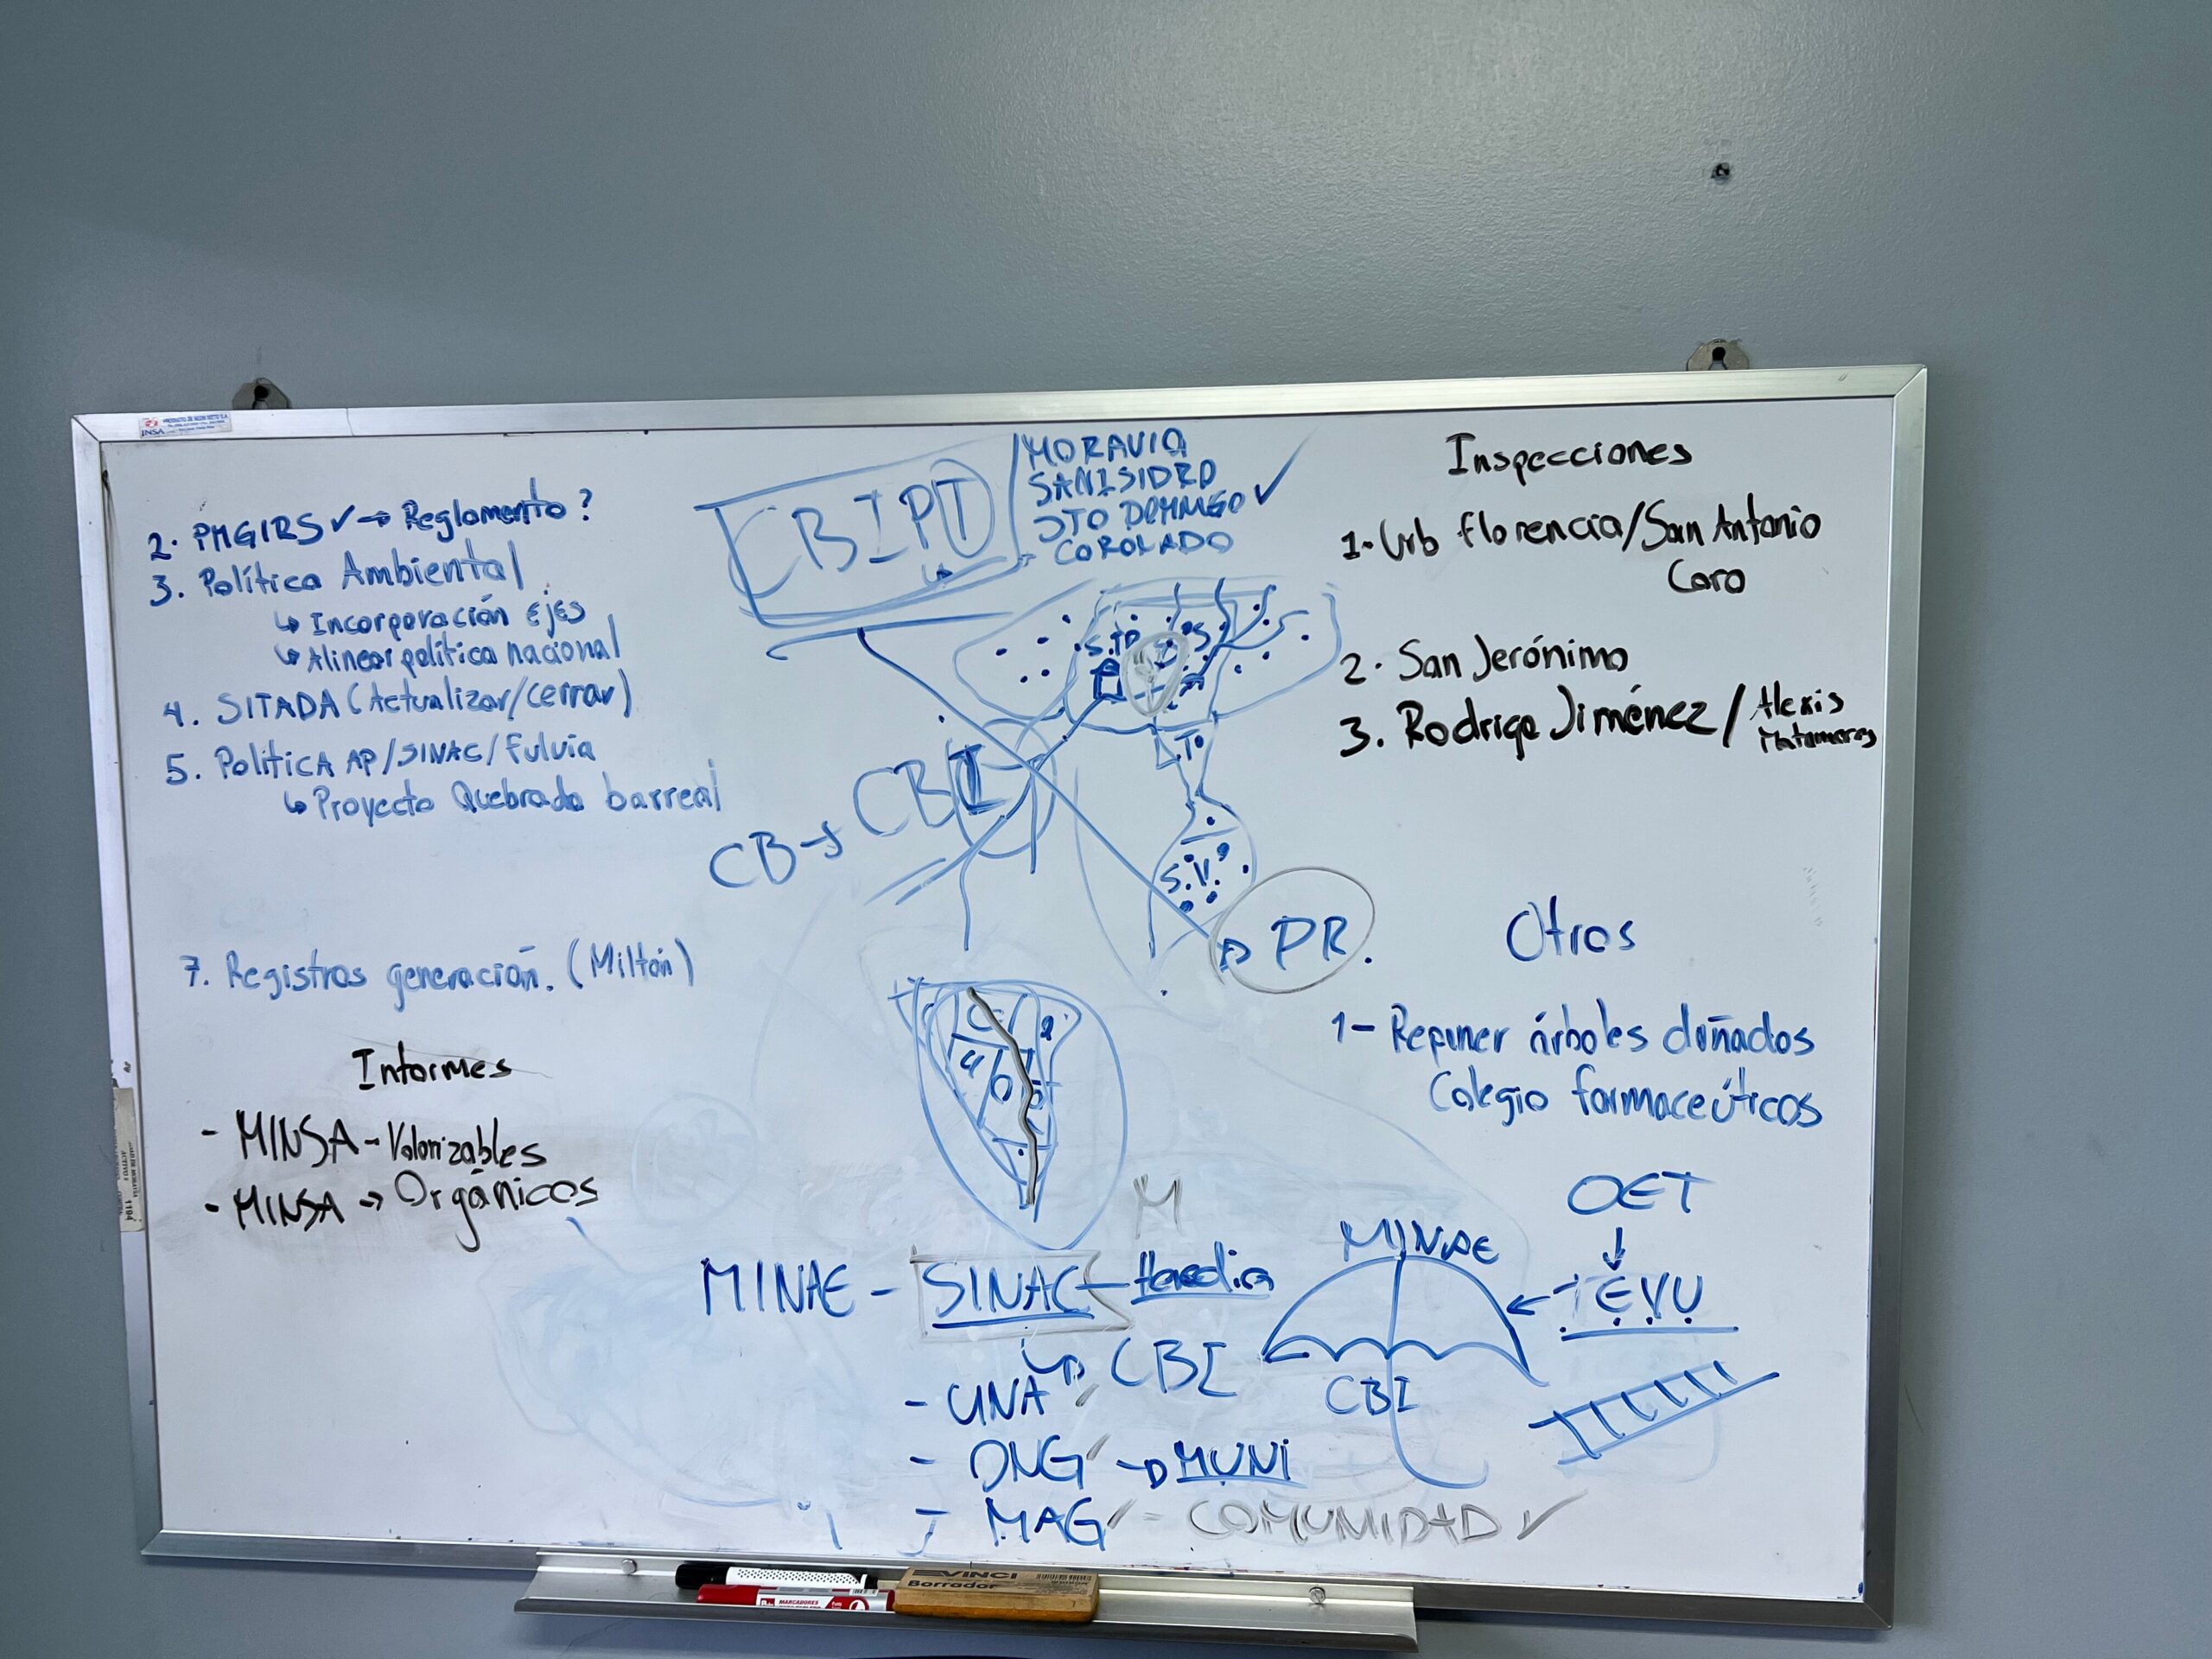 2. PMGIRS ✓ → Reglamento?
3. Política Ambiental
↳ Incorporación ejes
↳ Alinear política nacional
4. SITADA (Actualizar/cerrar)
5. Política AP/SINAC/Fulvia
↳ Proyecto Quebrada barreal
7. Registros generación. (Milton)
Informes
- MINSA - Valorizables
- MINSA → Orgánicos
CBIPT
MORAVIA
SAN ISIDRO
STO DOMINGO ✓
COROLADO
CB → CBI
S.V.
PR.
M
MINAE - SINAC - Heredia
↳ CBI
- UNA ✓
- ONG ✓ → MUNI
- MAG ✓ - COMUNIDAD ✓
Inspecciones
1. Urb florencia/San Antonio
Coro
2. San Jerónimo
3. Rodrigo Jiménez / Alexis
Matamoros
Otros
1- Reponer árboles dañados
Colegio farmaceúticos
OET
↓
MINAE
← TEVU
CBI
INSA
VINCI
Borrador
MARCADORES
1194